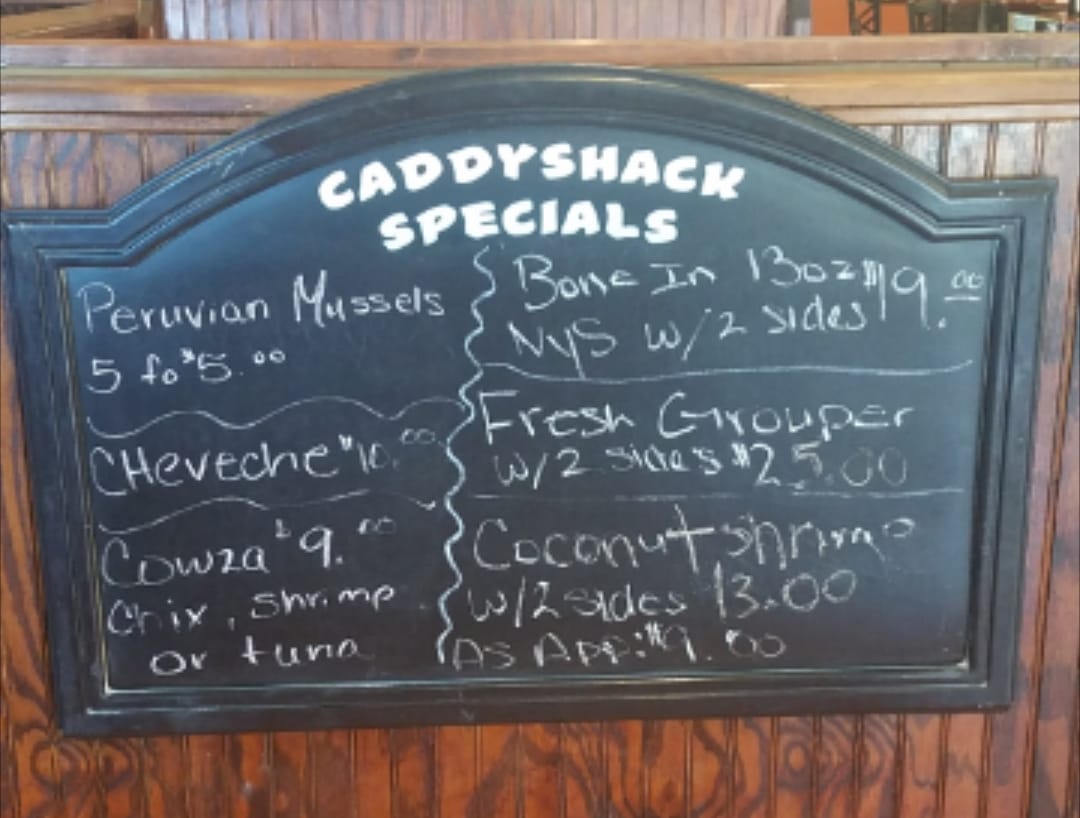 CADDYSHACK
SPECIALS
Peruvian Mussels
5 fo $5.00
CHeveche $10.00
Cowza $9.00
Chix, shrimp
or tuna
Bone In 13oz $19.00
NYS w/2 sides
Fresh Grouper
w/2 sides $25.00
Coconut shrimp
w/2 sides 13.00
As App: $9.00